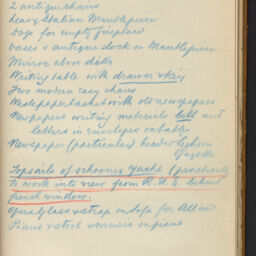 2 antique chairs
heavy Italian Mantlepiece
Dogs for empty fireplace
vases & antique clock on Mantlepiece
Mirror above ditto
Writing table with drawer & key
Two modern easy chairs
Wastepaper basket with old newspapers
Newspapers writing materials bell and
letters in envelopes on table
Newspaper (particular) headed Leghorn
Gazette
Topsails of schooner yacht (practical)
to work into view from R.U.E. behind
french window.
Operaglass & strap on sofa for Allan
Piano & stool on piano